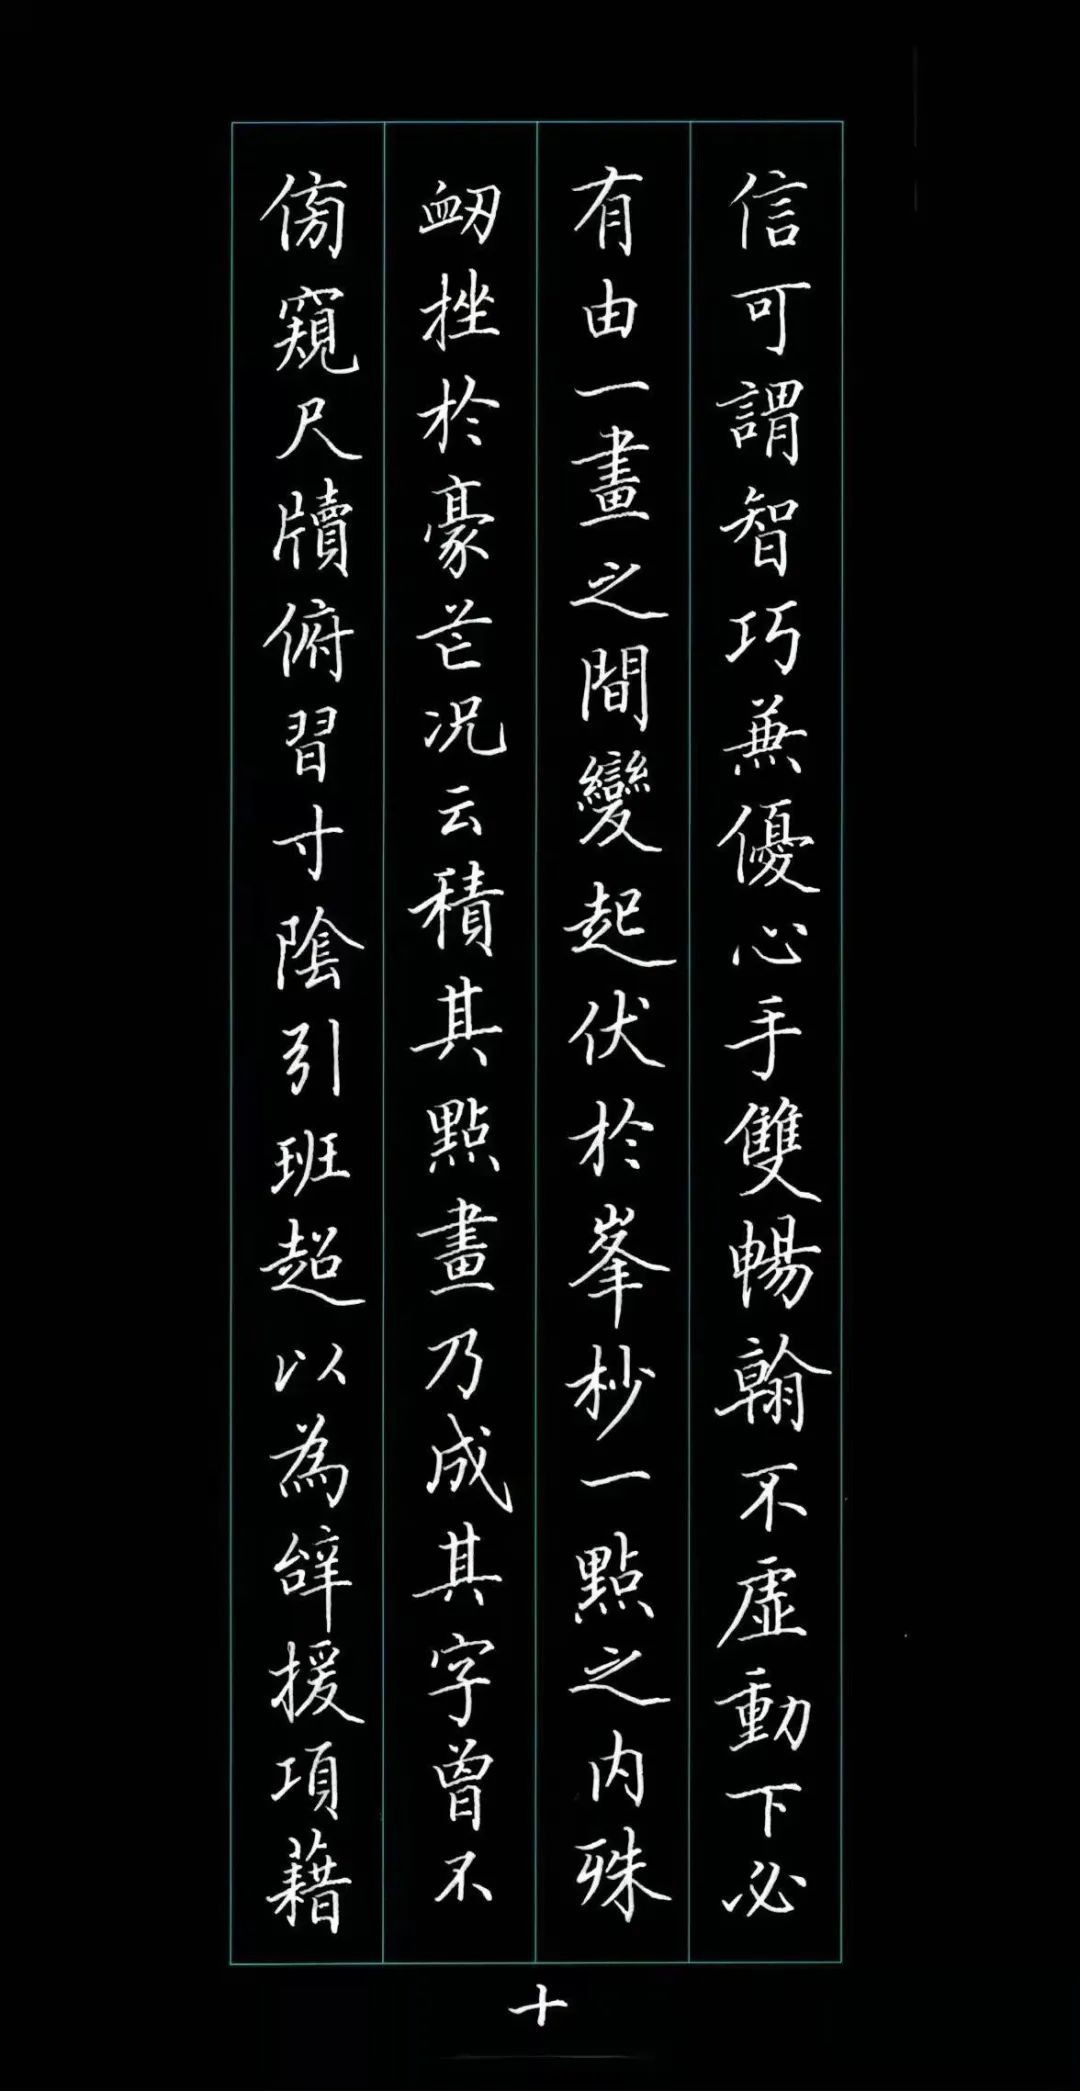 信可謂智巧兼優心手雙暢翰不虛動下必
有由一畫之間變起伏於峯杪一點之內殊
衂挫於豪芒况云積其點畫乃成其字曾不
傍窺尺牘俯習寸陰引班超以為辭援項藉
十